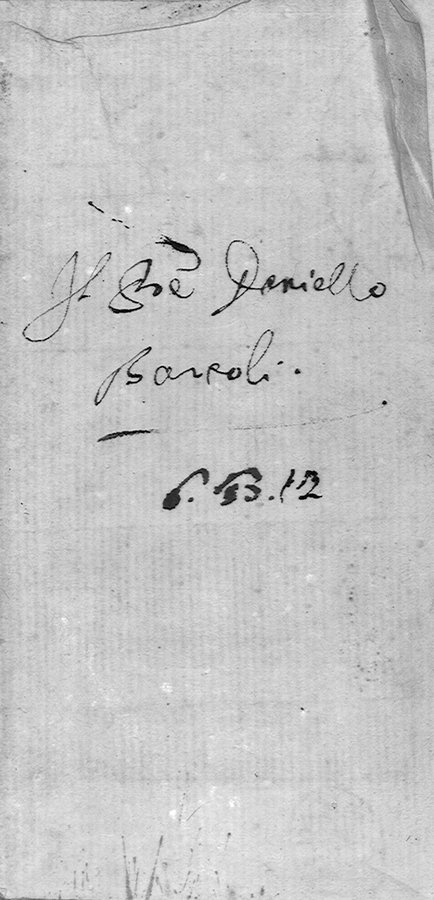 Il Pre Daniello
Bartoli.
6. B. 12